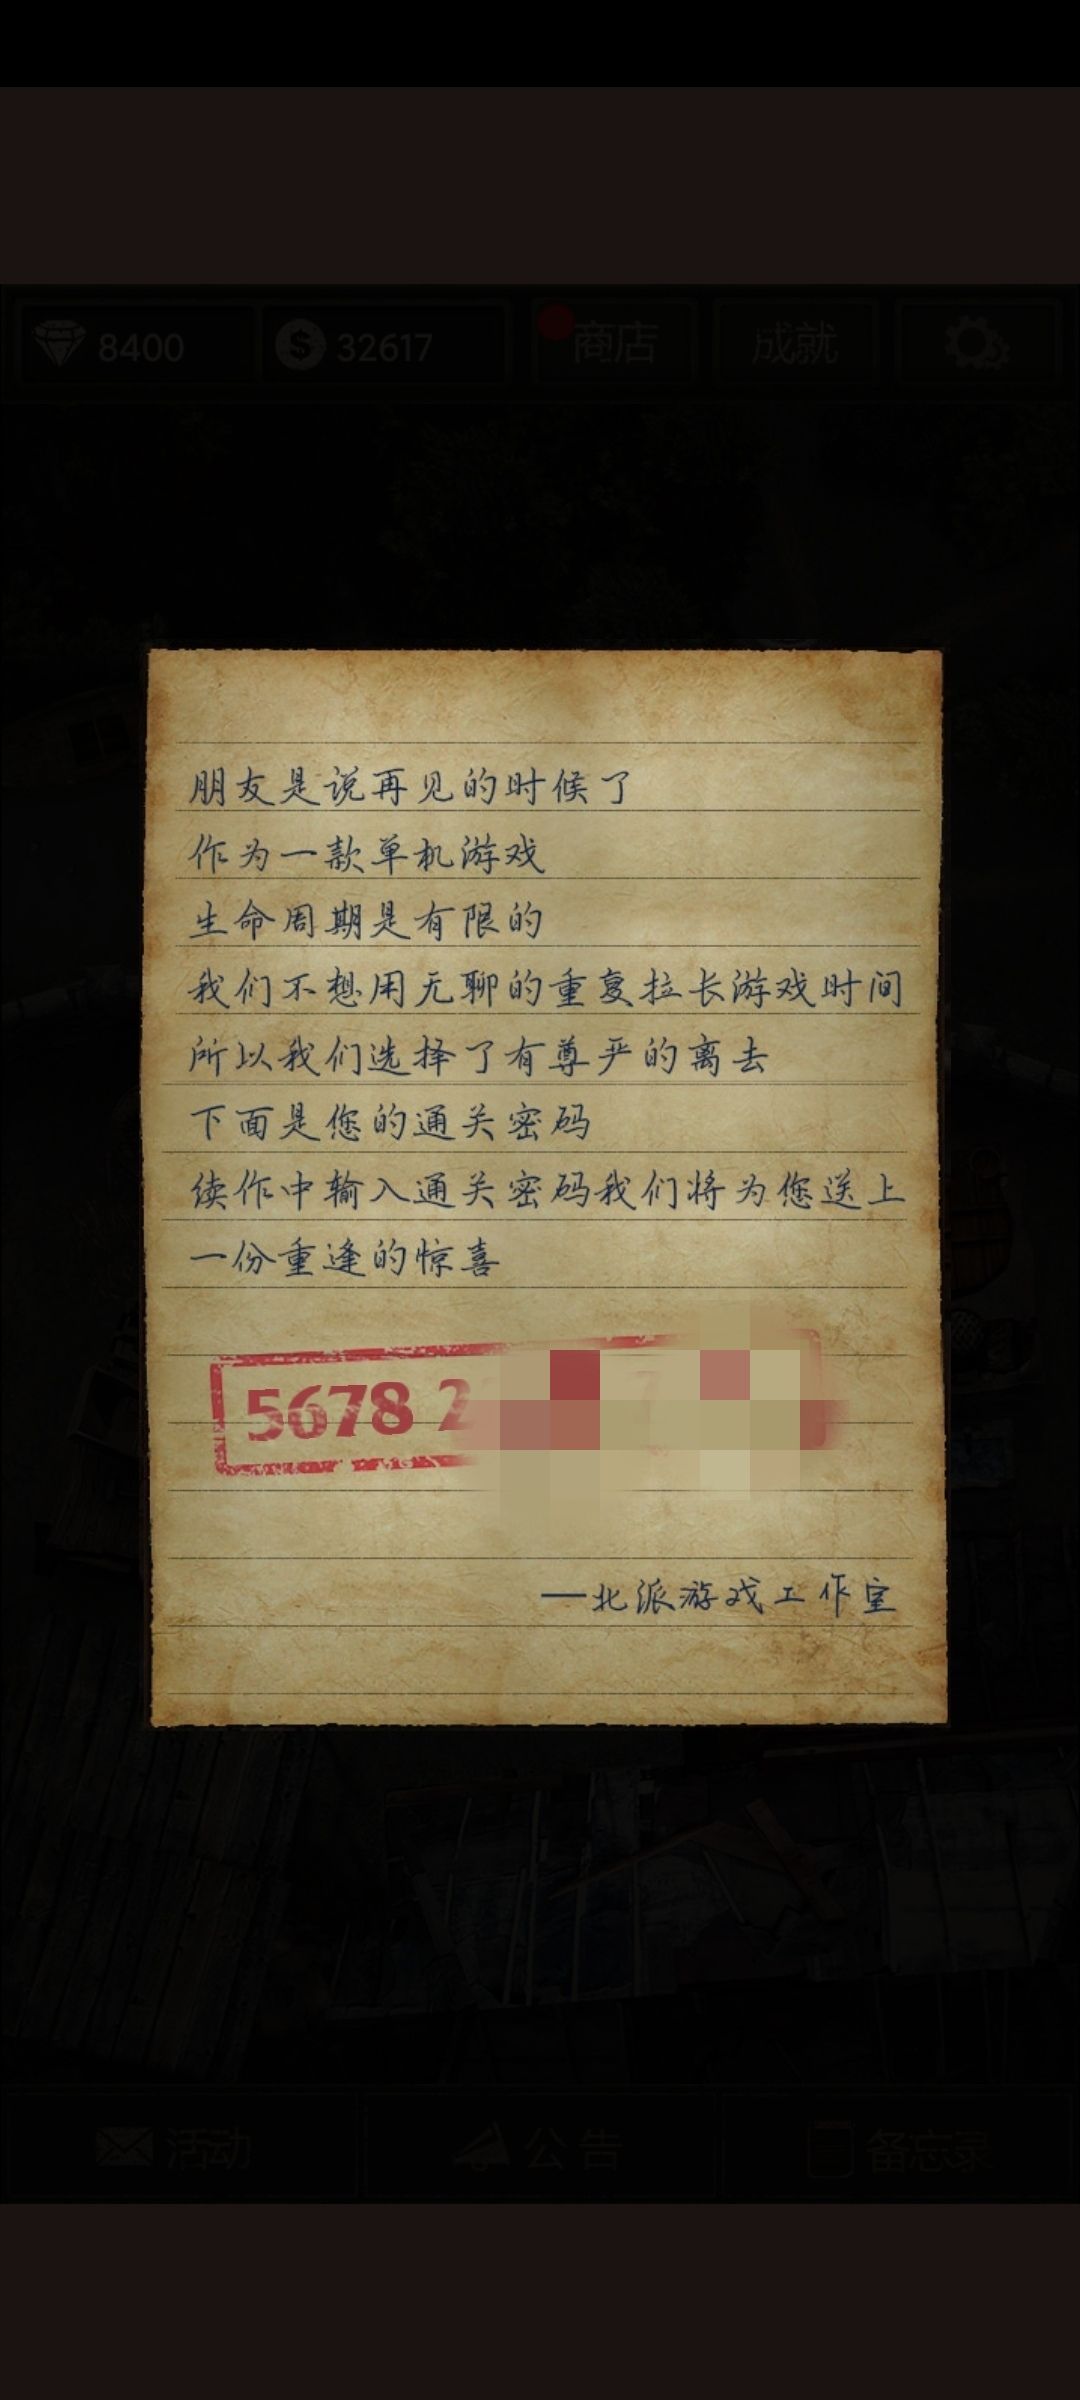 8400
32617
商店
成就
朋友是说再见的时候了
作为一款单机游戏
生命周期是有限的
我们不想用无聊的重复拉长游戏时间
所以我们选择了有尊严的离去
下面是您的通关密码
续作中输入通关密码我们将为您送上
一份重逢的惊喜
5678 2
—北派游戏工作室
活动
公告
备忘录